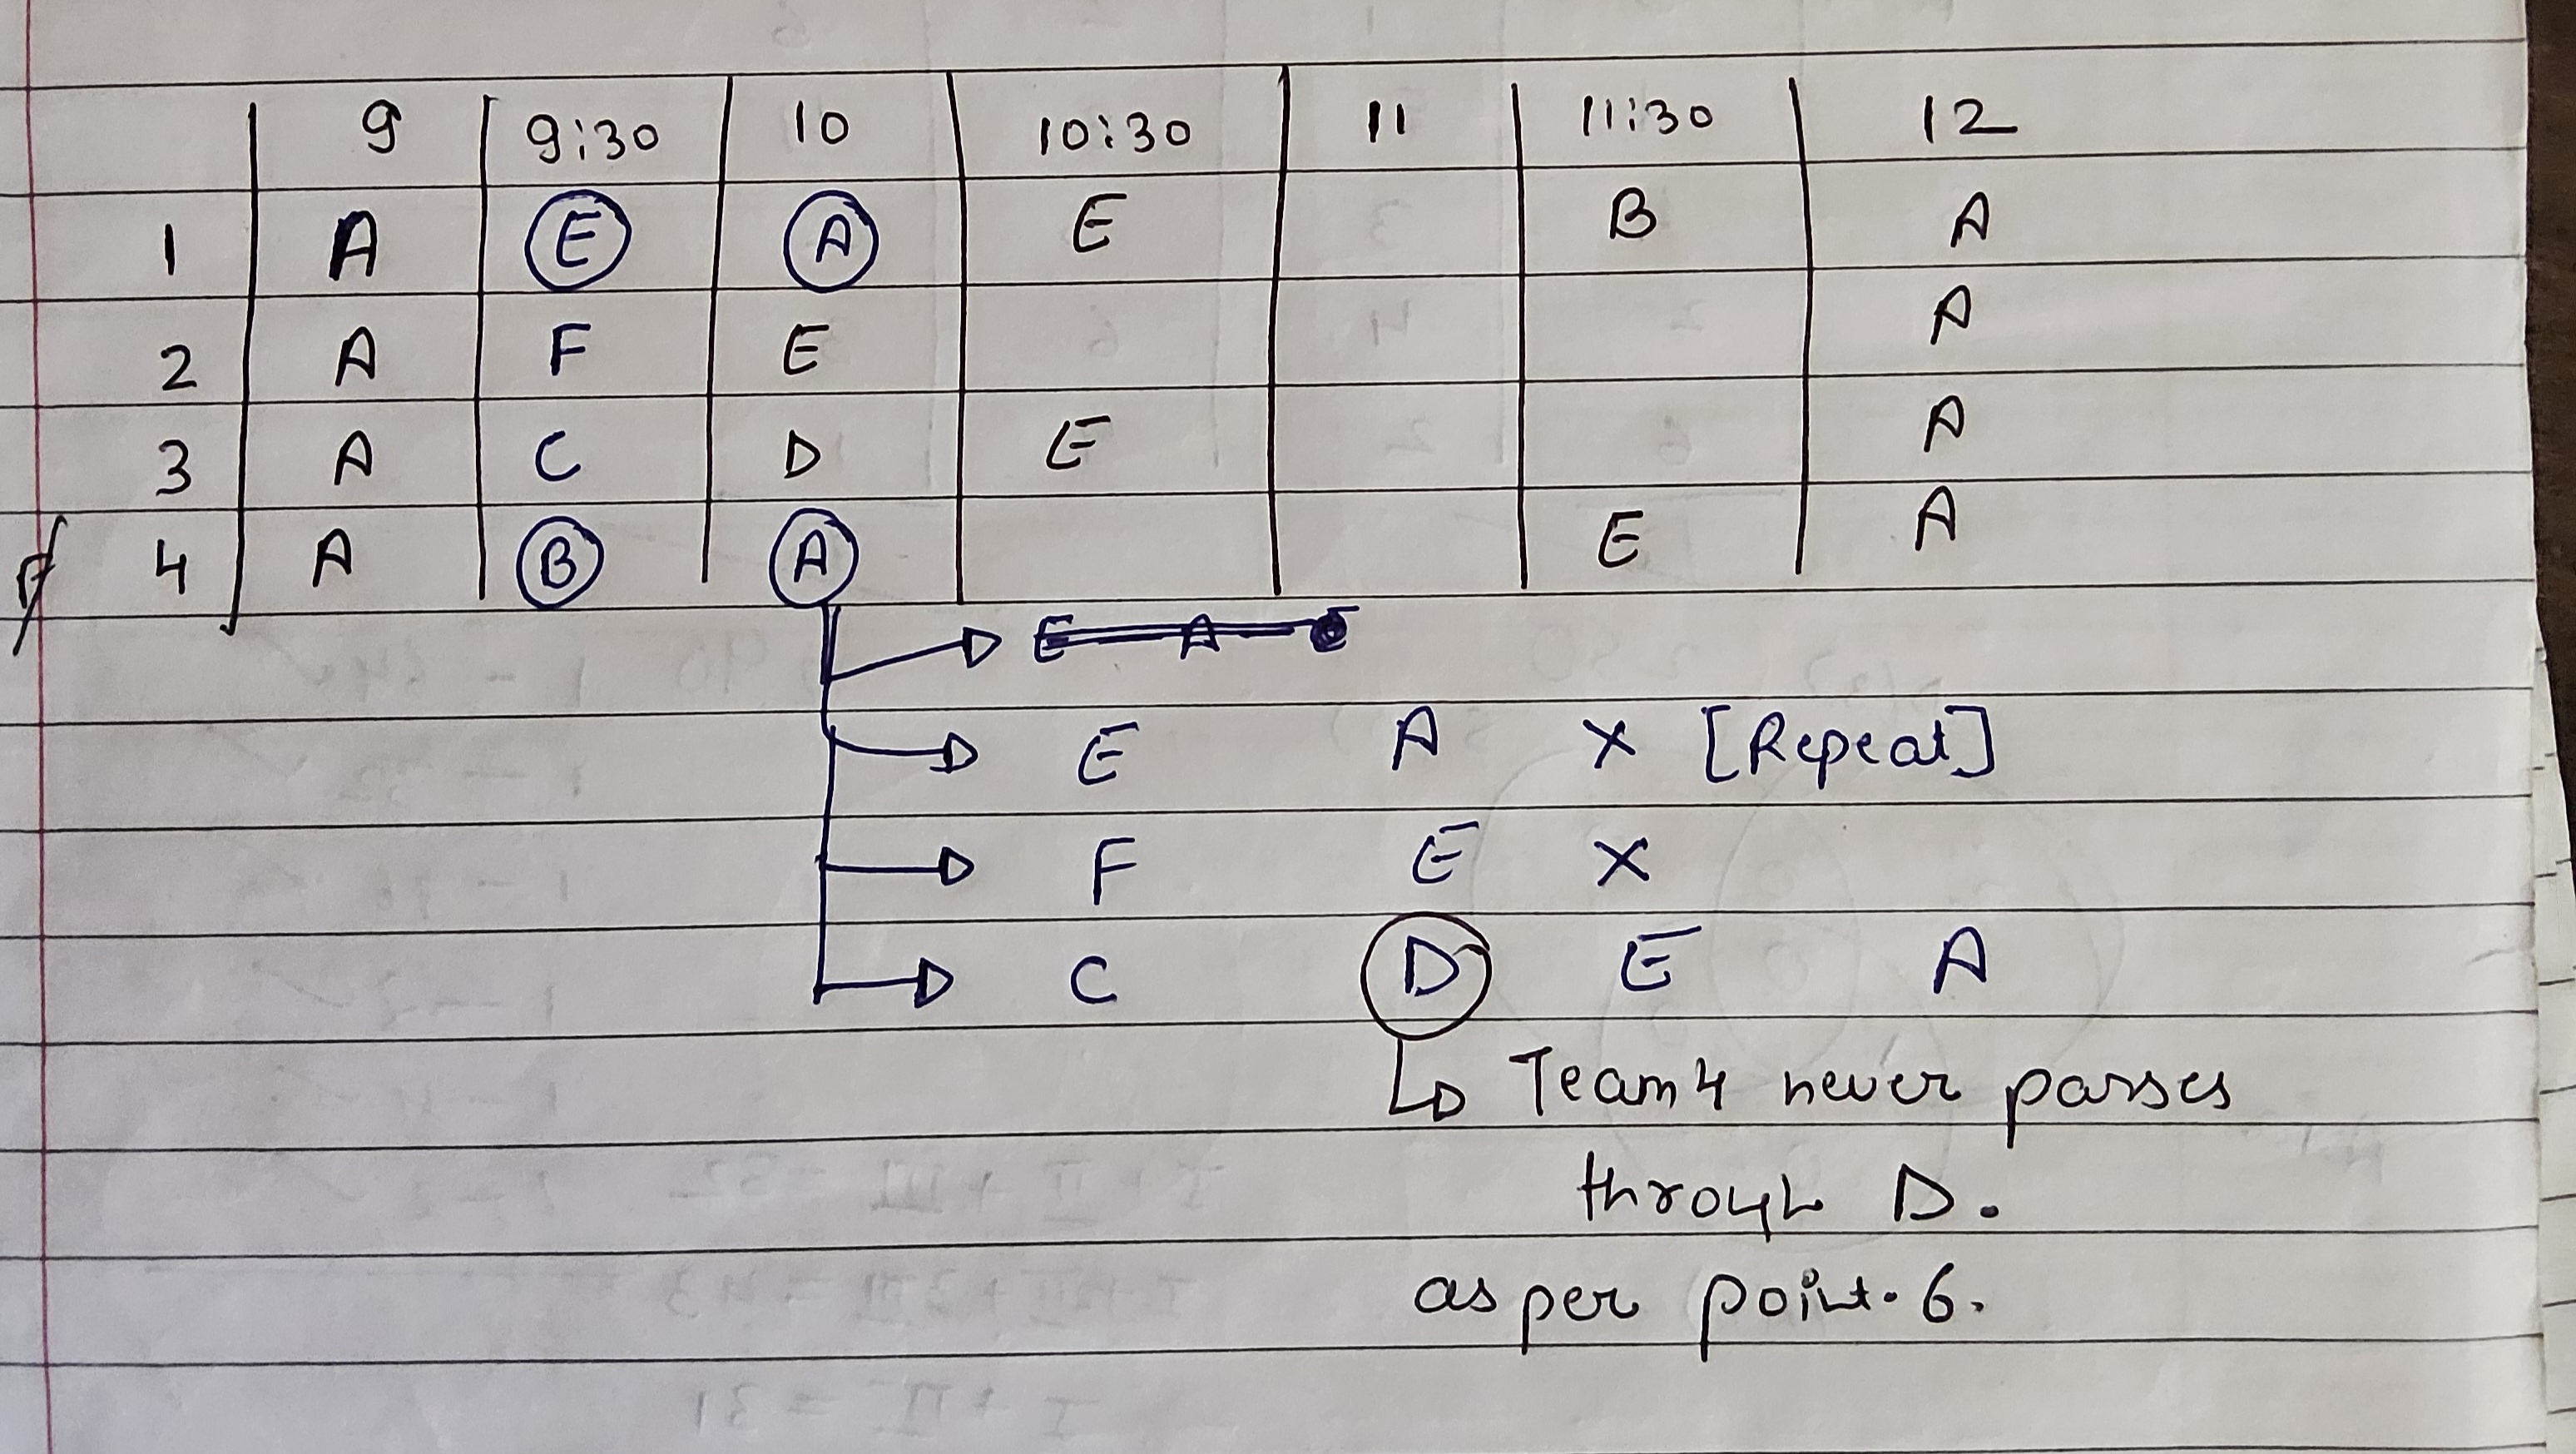 9 9:30 10 10:30 11 11:30 12
1 A E A E B A
2 A F E A
3 A C D E A
4 A B A E A
E A
E A X [Repeat]
F E X
C D E A
Team 4 never passes
through D.
as per point. 6.